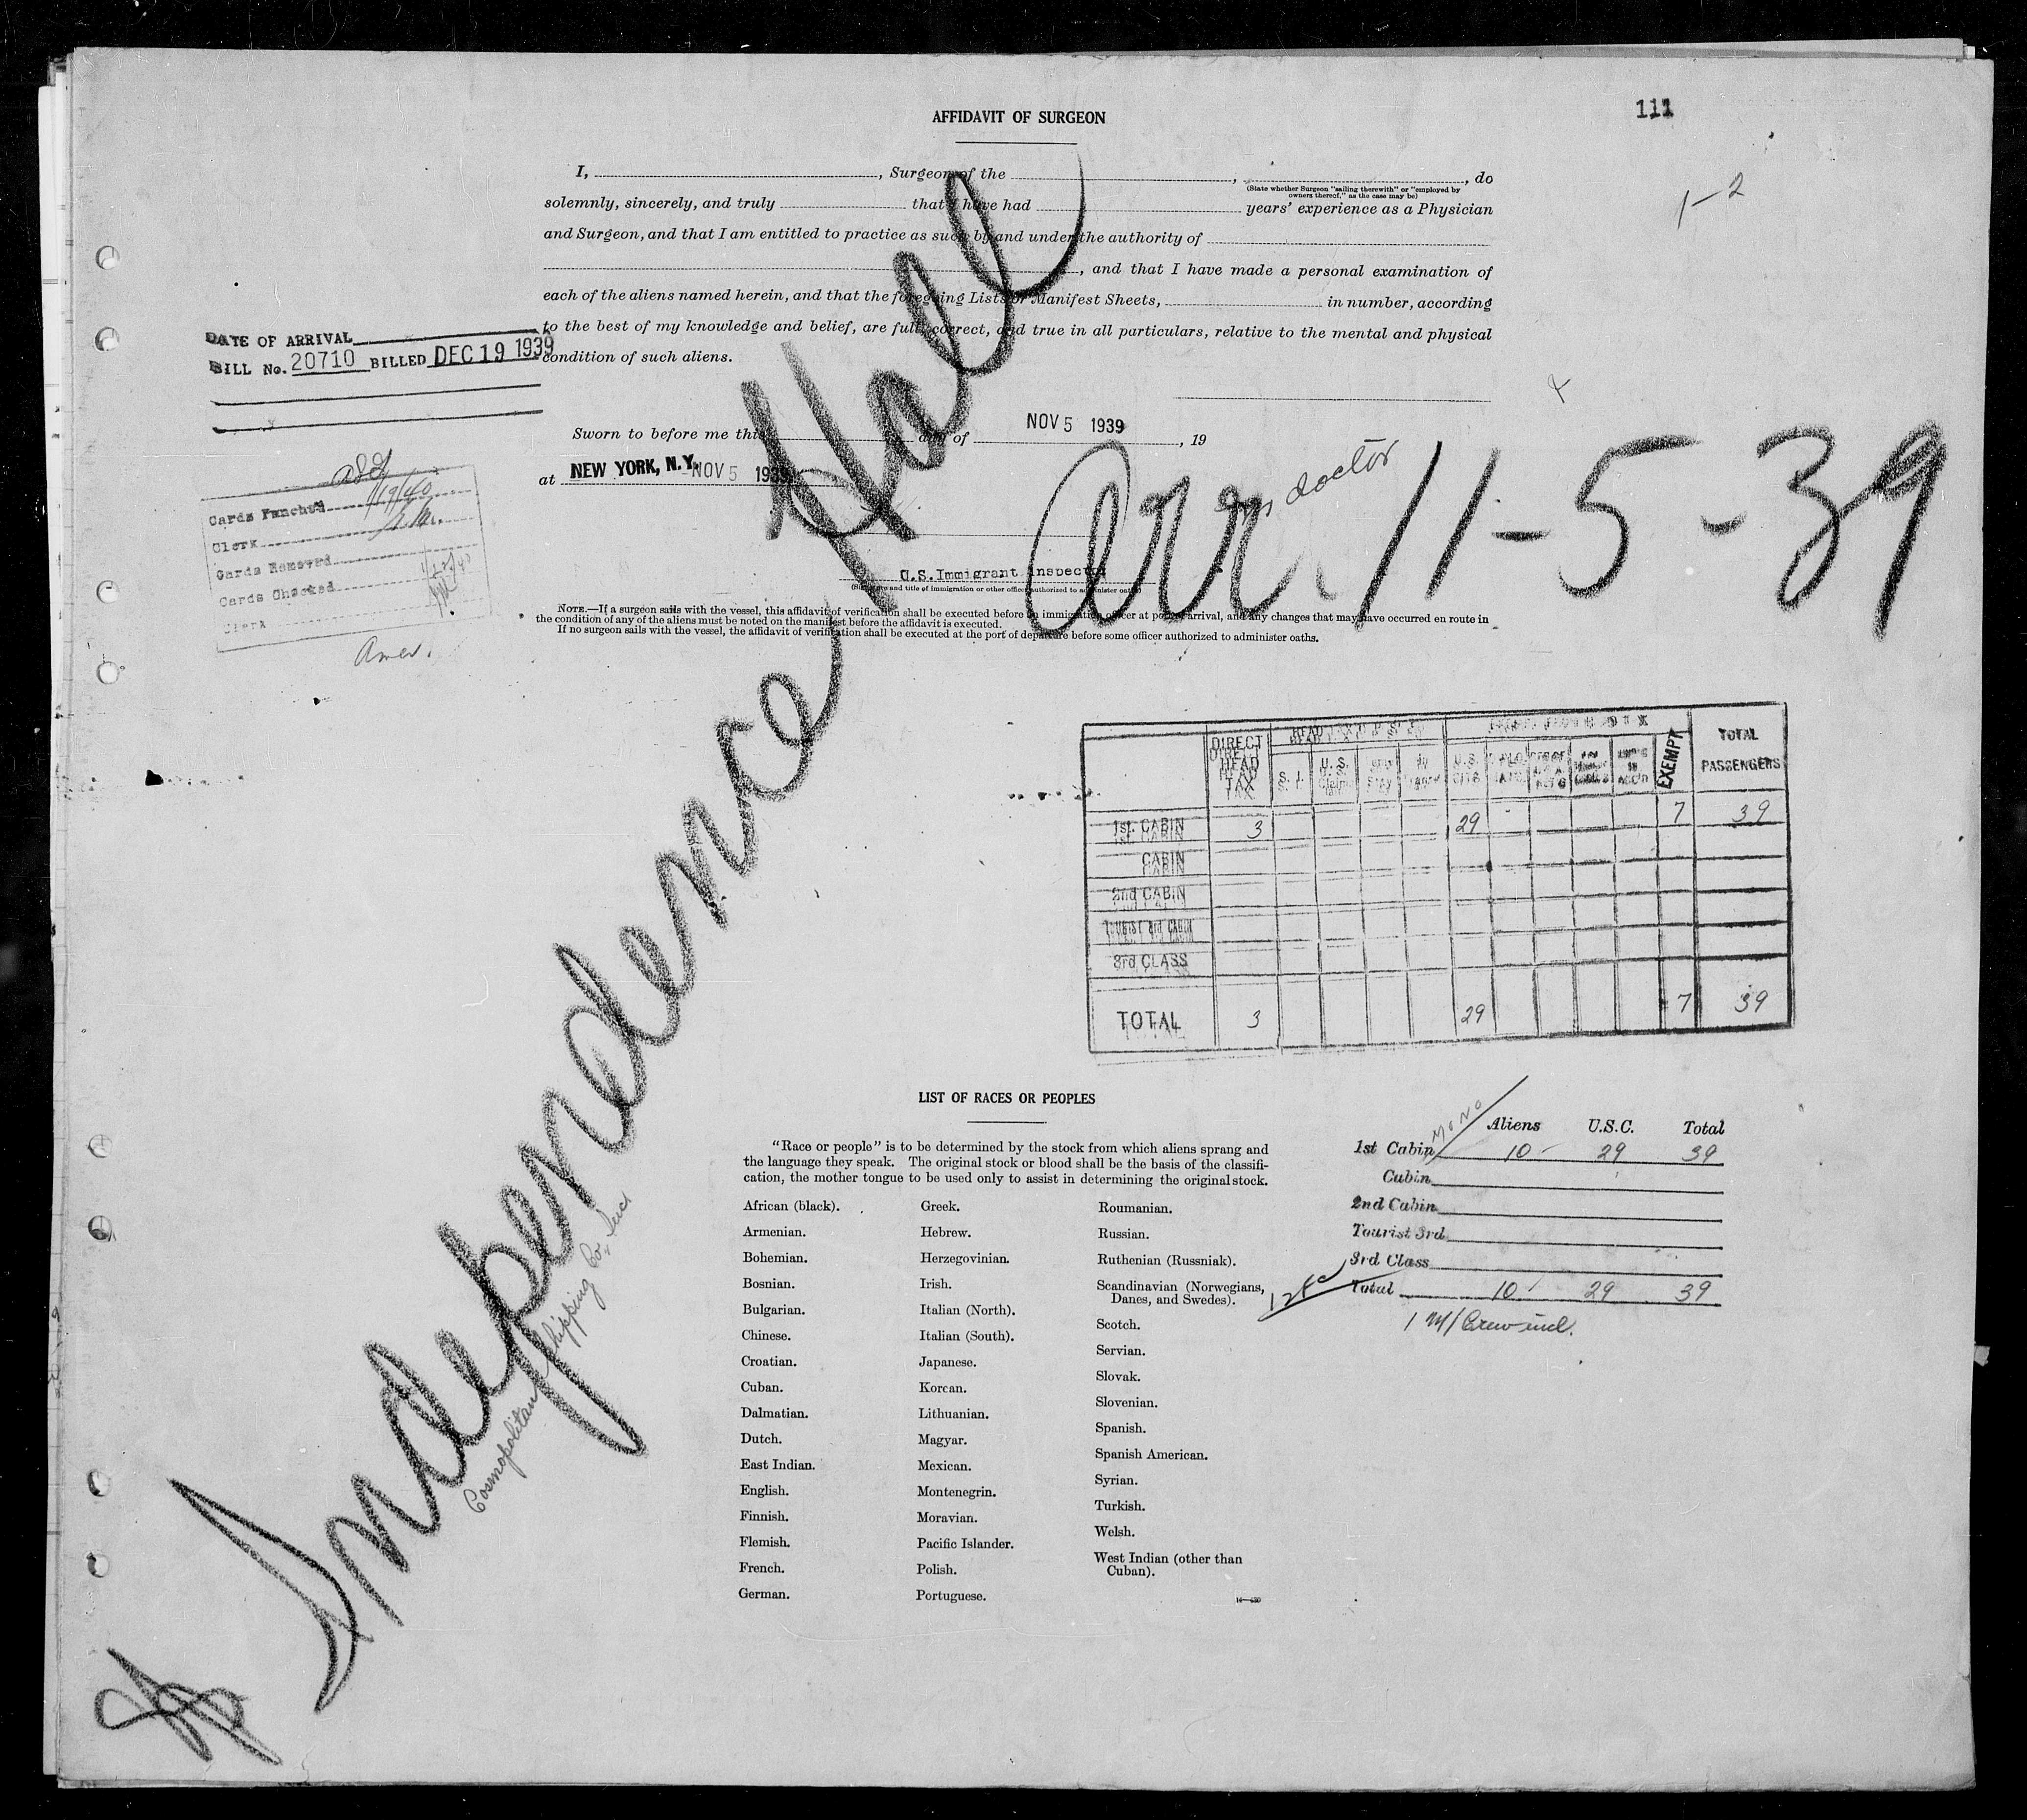 AFFIDAVIT OF SURGEON
111
1-2
I, , Surgeon of the , , do
(State whether Surgeon "sailing therewith" or "employed by owners thereof," as the case may be)
solemnly, sincerely, and truly that I have had years' experience as a Physician
and Surgeon, and that I am entitled to practice as such by and under the authority of
, and that I have made a personal examination of
each of the aliens named herein, and that the foregoing Lists or Manifest Sheets, in number, according
to the best of my knowledge and belief, are full, correct, and true in all particulars, relative to the mental and physical
condition of such aliens.
DATE OF ARRIVAL
BILL No. 20710 BILLED DEC 19 1939
Sworn to before me this day of NOV 5 1939, 19
at NEW YORK, N.Y. NOV 5 1939
doctor
Arr. 11-5-39
Cards Punched 1/19/40
Clerk
Cards Removed
Cards Checked
Clerk
Amer.
U.S.Immigrant Inspector
(Signature and title of immigration or other officer authorized to administer oaths)
NOTE.—If a surgeon sails with the vessel, this affidavit of verification shall be executed before an immigration officer at port of arrival, and any changes that may have occurred en route in
the condition of any of the aliens must be noted on the manifest before the affidavit is executed.
If no surgeon sails with the vessel, the affidavit of verification shall be executed at the port of departure before some officer authorized to administer oaths.
SS Independence Hall
Cosmopolitan Shipping Co. Inc
DIRECT HEAD TAX S. I. U. S. U.S. CITS EXEMPT TOTAL PASSENGERS
1st. CABIN 3 29 7 39
CABIN
2nd CABIN
TOURIST 3rd CABIN
3rd CLASS
TOTAL 3 29 7 39
LIST OF RACES OR PEOPLES
"Race or people" is to be determined by the stock from which aliens sprang and
the language they speak. The original stock or blood shall be the basis of the classifi-
cation, the mother tongue to be used only to assist in determining the original stock.
African (black).
Armenian.
Bohemian.
Bosnian.
Bulgarian.
Chinese.
Croatian.
Cuban.
Dalmatian.
Dutch.
East Indian.
English.
Finnish.
Flemish.
French.
German.
Greek.
Hebrew.
Herzegovinian.
Irish.
Italian (North).
Italian (South).
Japanese.
Korean.
Lithuanian.
Magyar.
Mexican.
Montenegrin.
Moravian.
Pacific Islander.
Polish.
Portuguese.
Roumanian.
Russian.
Ruthenian (Russniak).
Scandinavian (Norwegians,
Danes, and Swedes).
Scotch.
Servian.
Slovak.
Slovenian.
Spanish.
Spanish American.
Syrian.
Turkish.
Welsh.
West Indian (other than
Cuban).
Aliens U.S.C. Total
1st Cabin 10 29 39
Cabin
2nd Cabin
Tourist 3rd
3rd Class
Total 10 29 39
1 M/Crew incl.